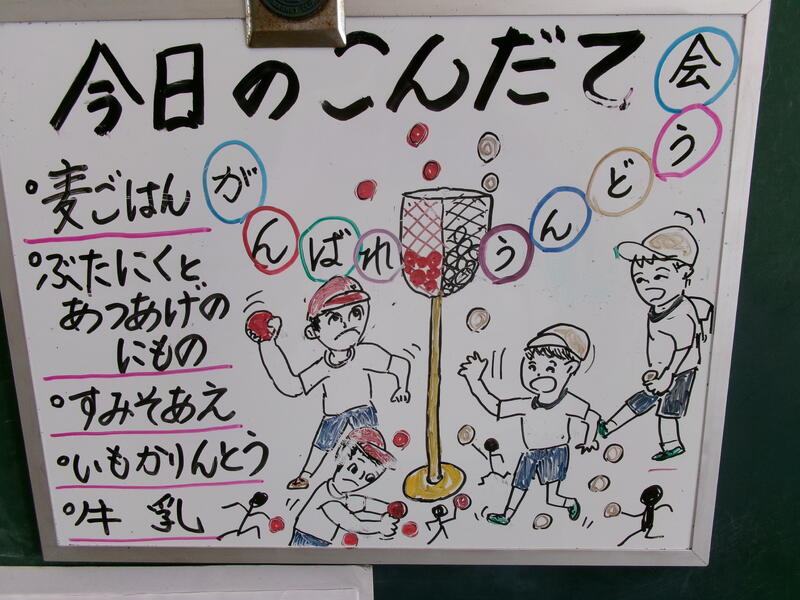 今日のこんだて
がんばれうんどう会
麦ごはん
ぶたにくと
あつあげの
にもの
すみそあえ
いもかりんとう
牛乳